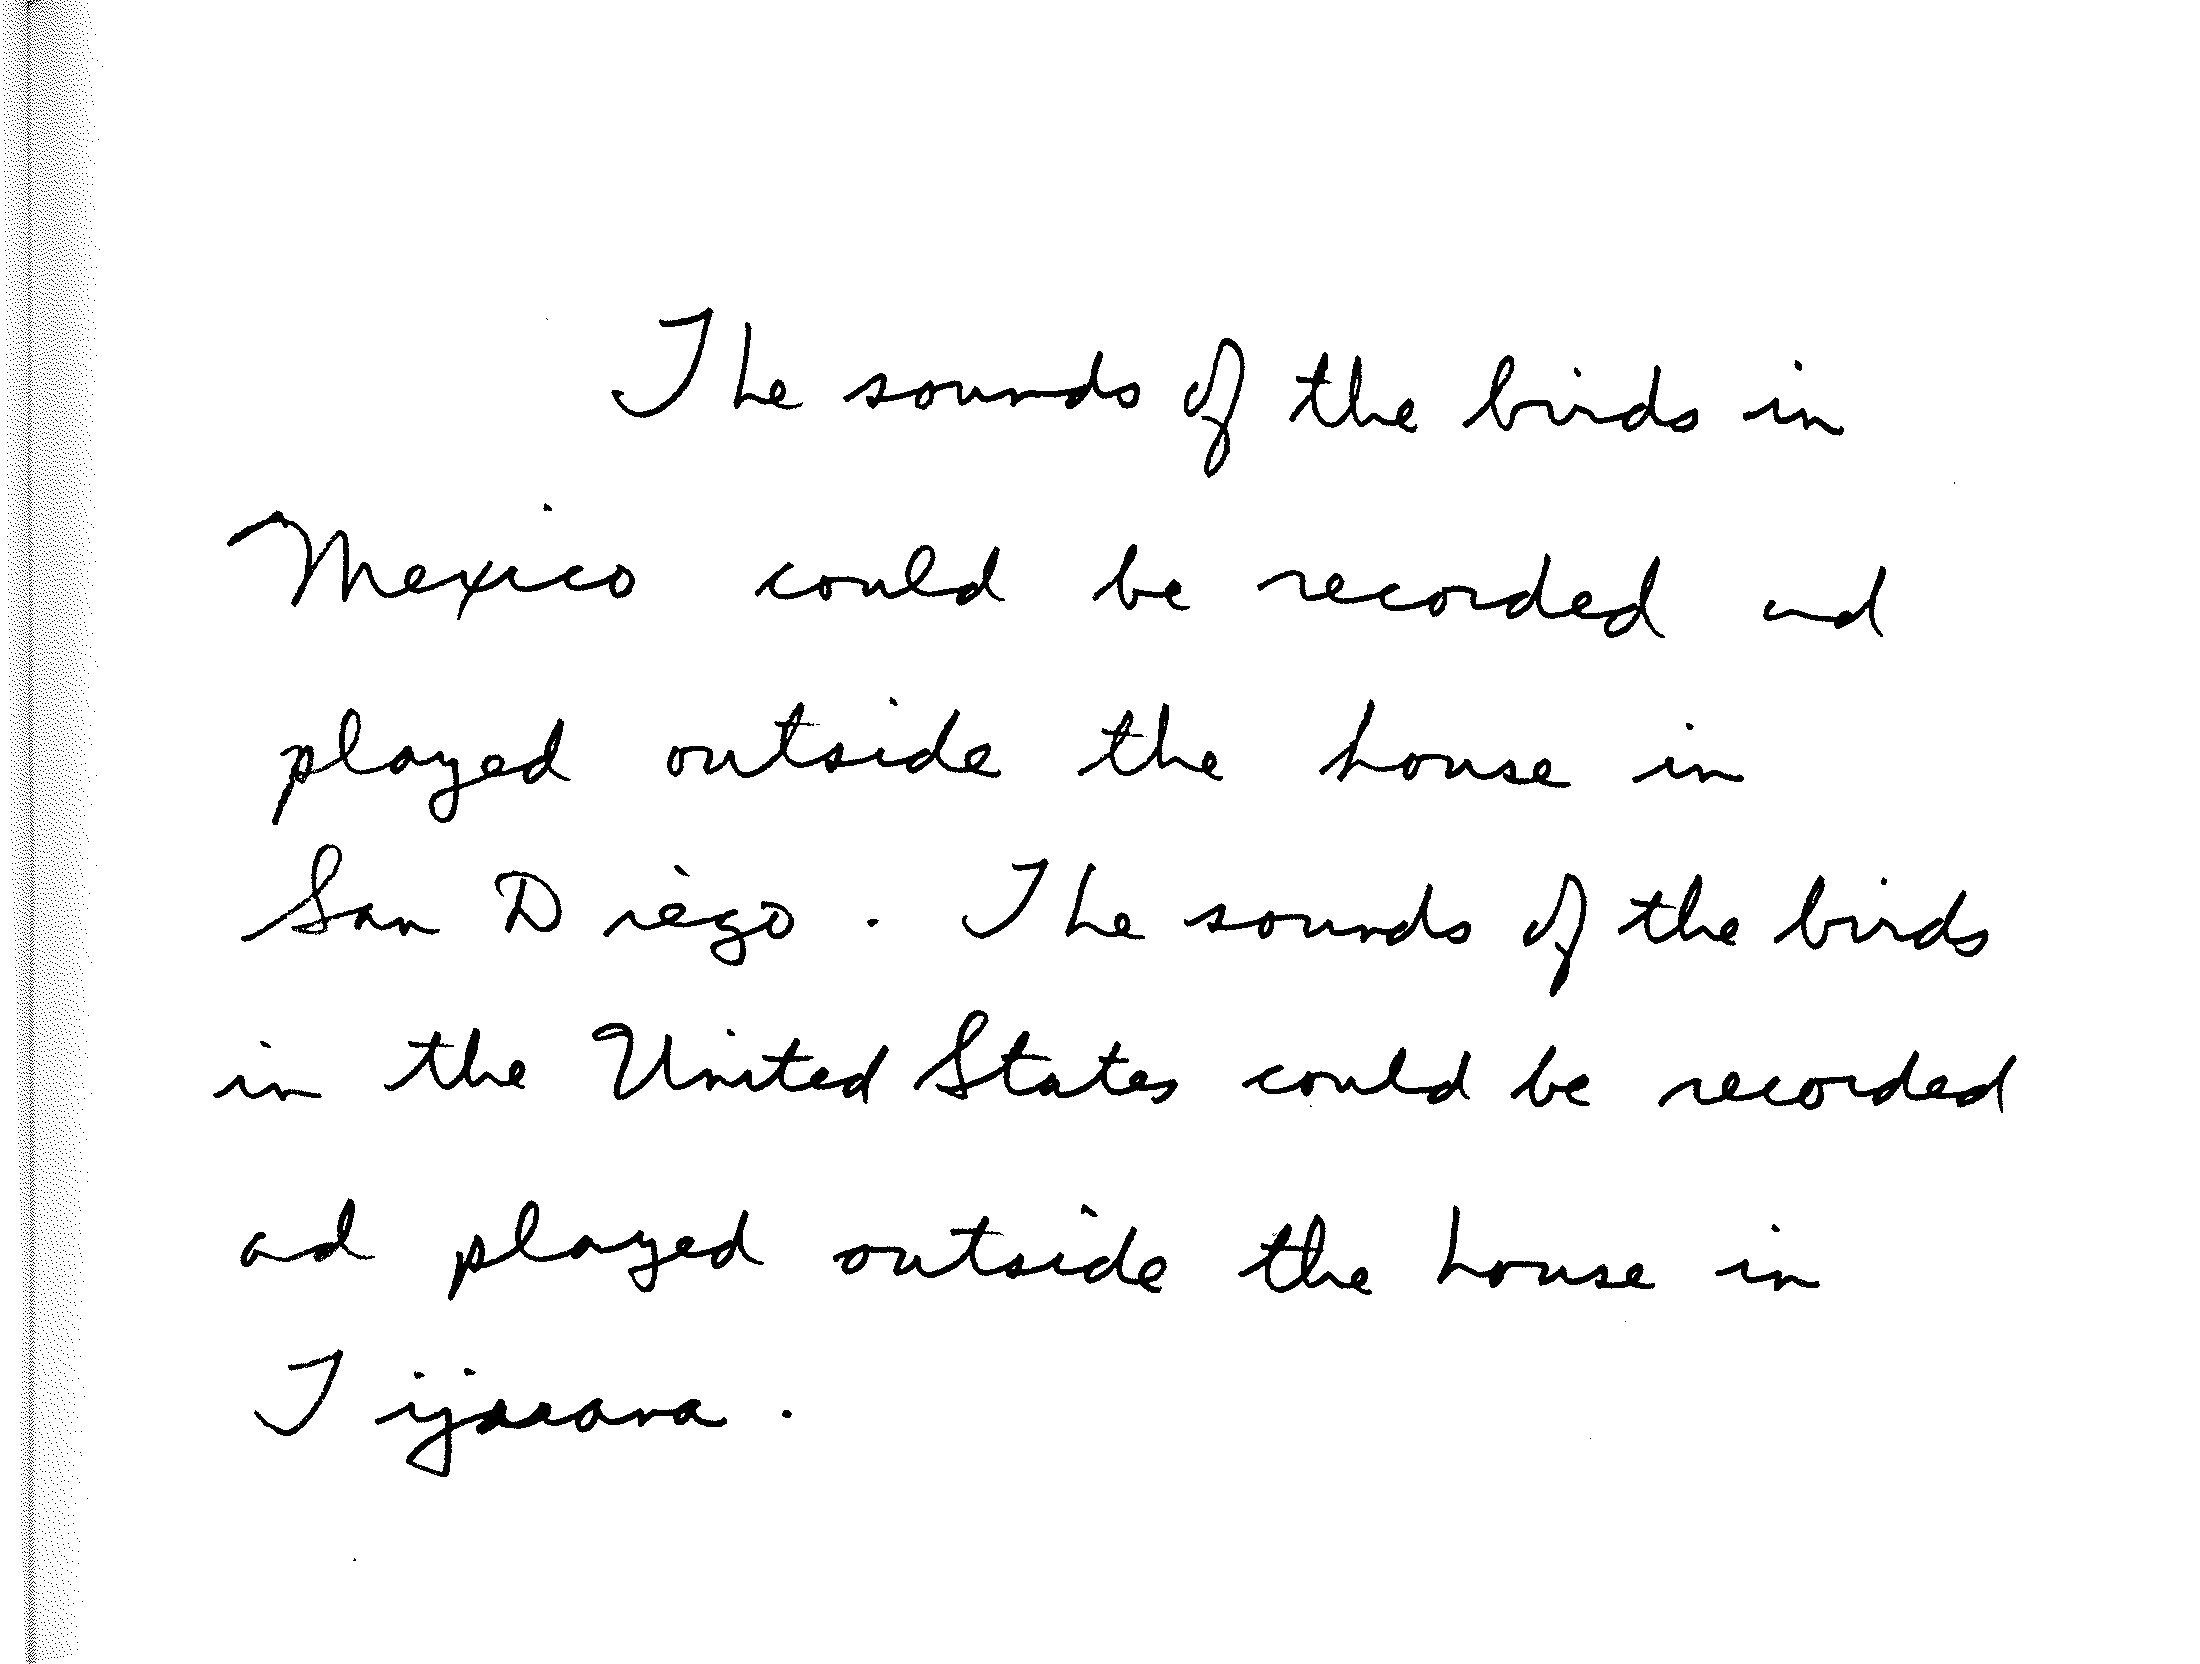 The sounds of the birds in
Mexico could be recorded and
played outside the house in
San Diego. The sounds of the birds
in the United States could be recorded
and played outside the house in
Tijuana.